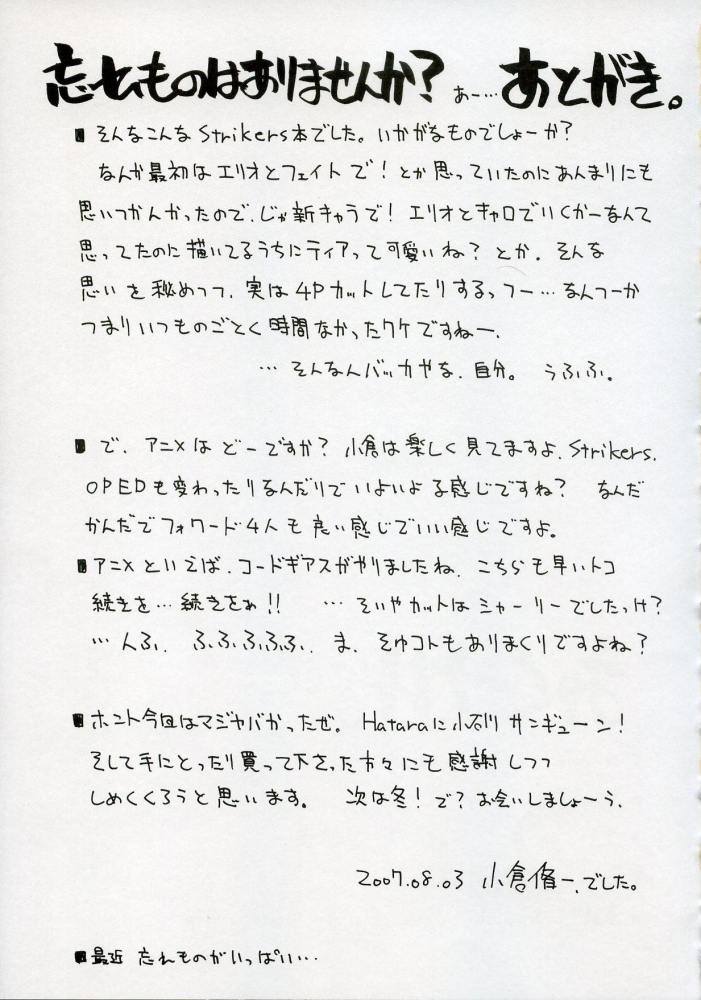 忘れものはありませんか? あー… あとがき。
■ そんなこんな Strikers本でした。いかがなものでしょーか?
なんか最初はエリオとフェイトで!とか思っていたのにあんまりにも
思いつかんかったので、じゃ新キャラで!エリオとキャロでいくかーなんて
思ってたのに描いてるうちにティアって可愛いね?とか、そんな
思いを秘めつつ、実は4Pカットしてたりするっつー…なんつーか
つまりいつものごとく時間なかったワケですねー、
… そんなんバッカやな、自分。 うふふ。
■ で、アニメはどーですか?小倉は楽しく見てますよ、Strikers、
OPEDも変わったりなんだりでいよいよな感じですね? なんだ
かんだでフォワード4人も良い感じでいい感じですよ。
■アニメといえば、コードギアスがやりましたね、こちらも早いトコ
続きを…続きをぉ!! …そいやカットはシャーリーでしたっけ?
…んふ、ふふふふふ、ま、そゆコトもありまくりですよね?
■ホント今回はマジヤバかったぜ。Hataraに小石川 サンギューン!
そして手にとったり買って下さった方々にも感謝しつつ
しめくくろうと思います。 次は冬!で?お会いしましょーう、
2007.08.03 小倉脩一、でした。
■最近 忘れものがいっぱい…